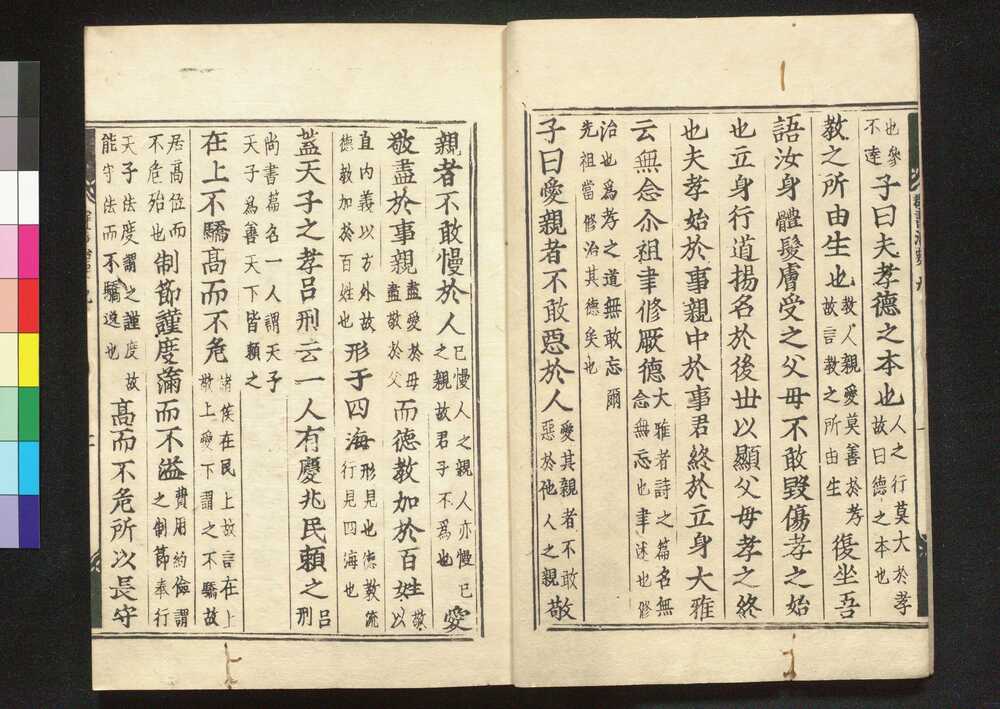 也參不達子曰夫孝德之本也人之行莫大於孝故曰德之本也
教之所由生也教人親愛莫善於孝故言教之所由生復坐吾
語汝身體髮膚受之父母不敢毀傷孝之始
也立身行道揚名於後世以顯父母孝之終
也夫孝始於事親中於事君終於立身大雅
云無念尒祖聿修厥德大雅者詩之篇名無念無忘也聿述也修
治也為孝之道無敢忘爾先祖當修治其德矣也
子曰愛親者不敢惡於人愛其親者不敢惡於他人之親敬
親者不敢慢於人己慢人之親人亦慢己之親故君子不為也愛
敬盡於事親盡愛於母盡敬於父而德教加於百姓敬以
直內義以方外故德教加於百姓也形于四海形見也德教流行見四海也
蓋天子之孝呂刑云一人有慶兆民賴之呂刑
尚書篇名一人謂天子天子為善天下皆賴之
在上不驕高而不危諸侯在民上故言在上敬上愛下謂之不驕故
居高位而不危殆也制節謹度滿而不溢費用約儉謂之制節奉行
天子法度謂之謹度故能守法而不驕逸也高而不危所以長守